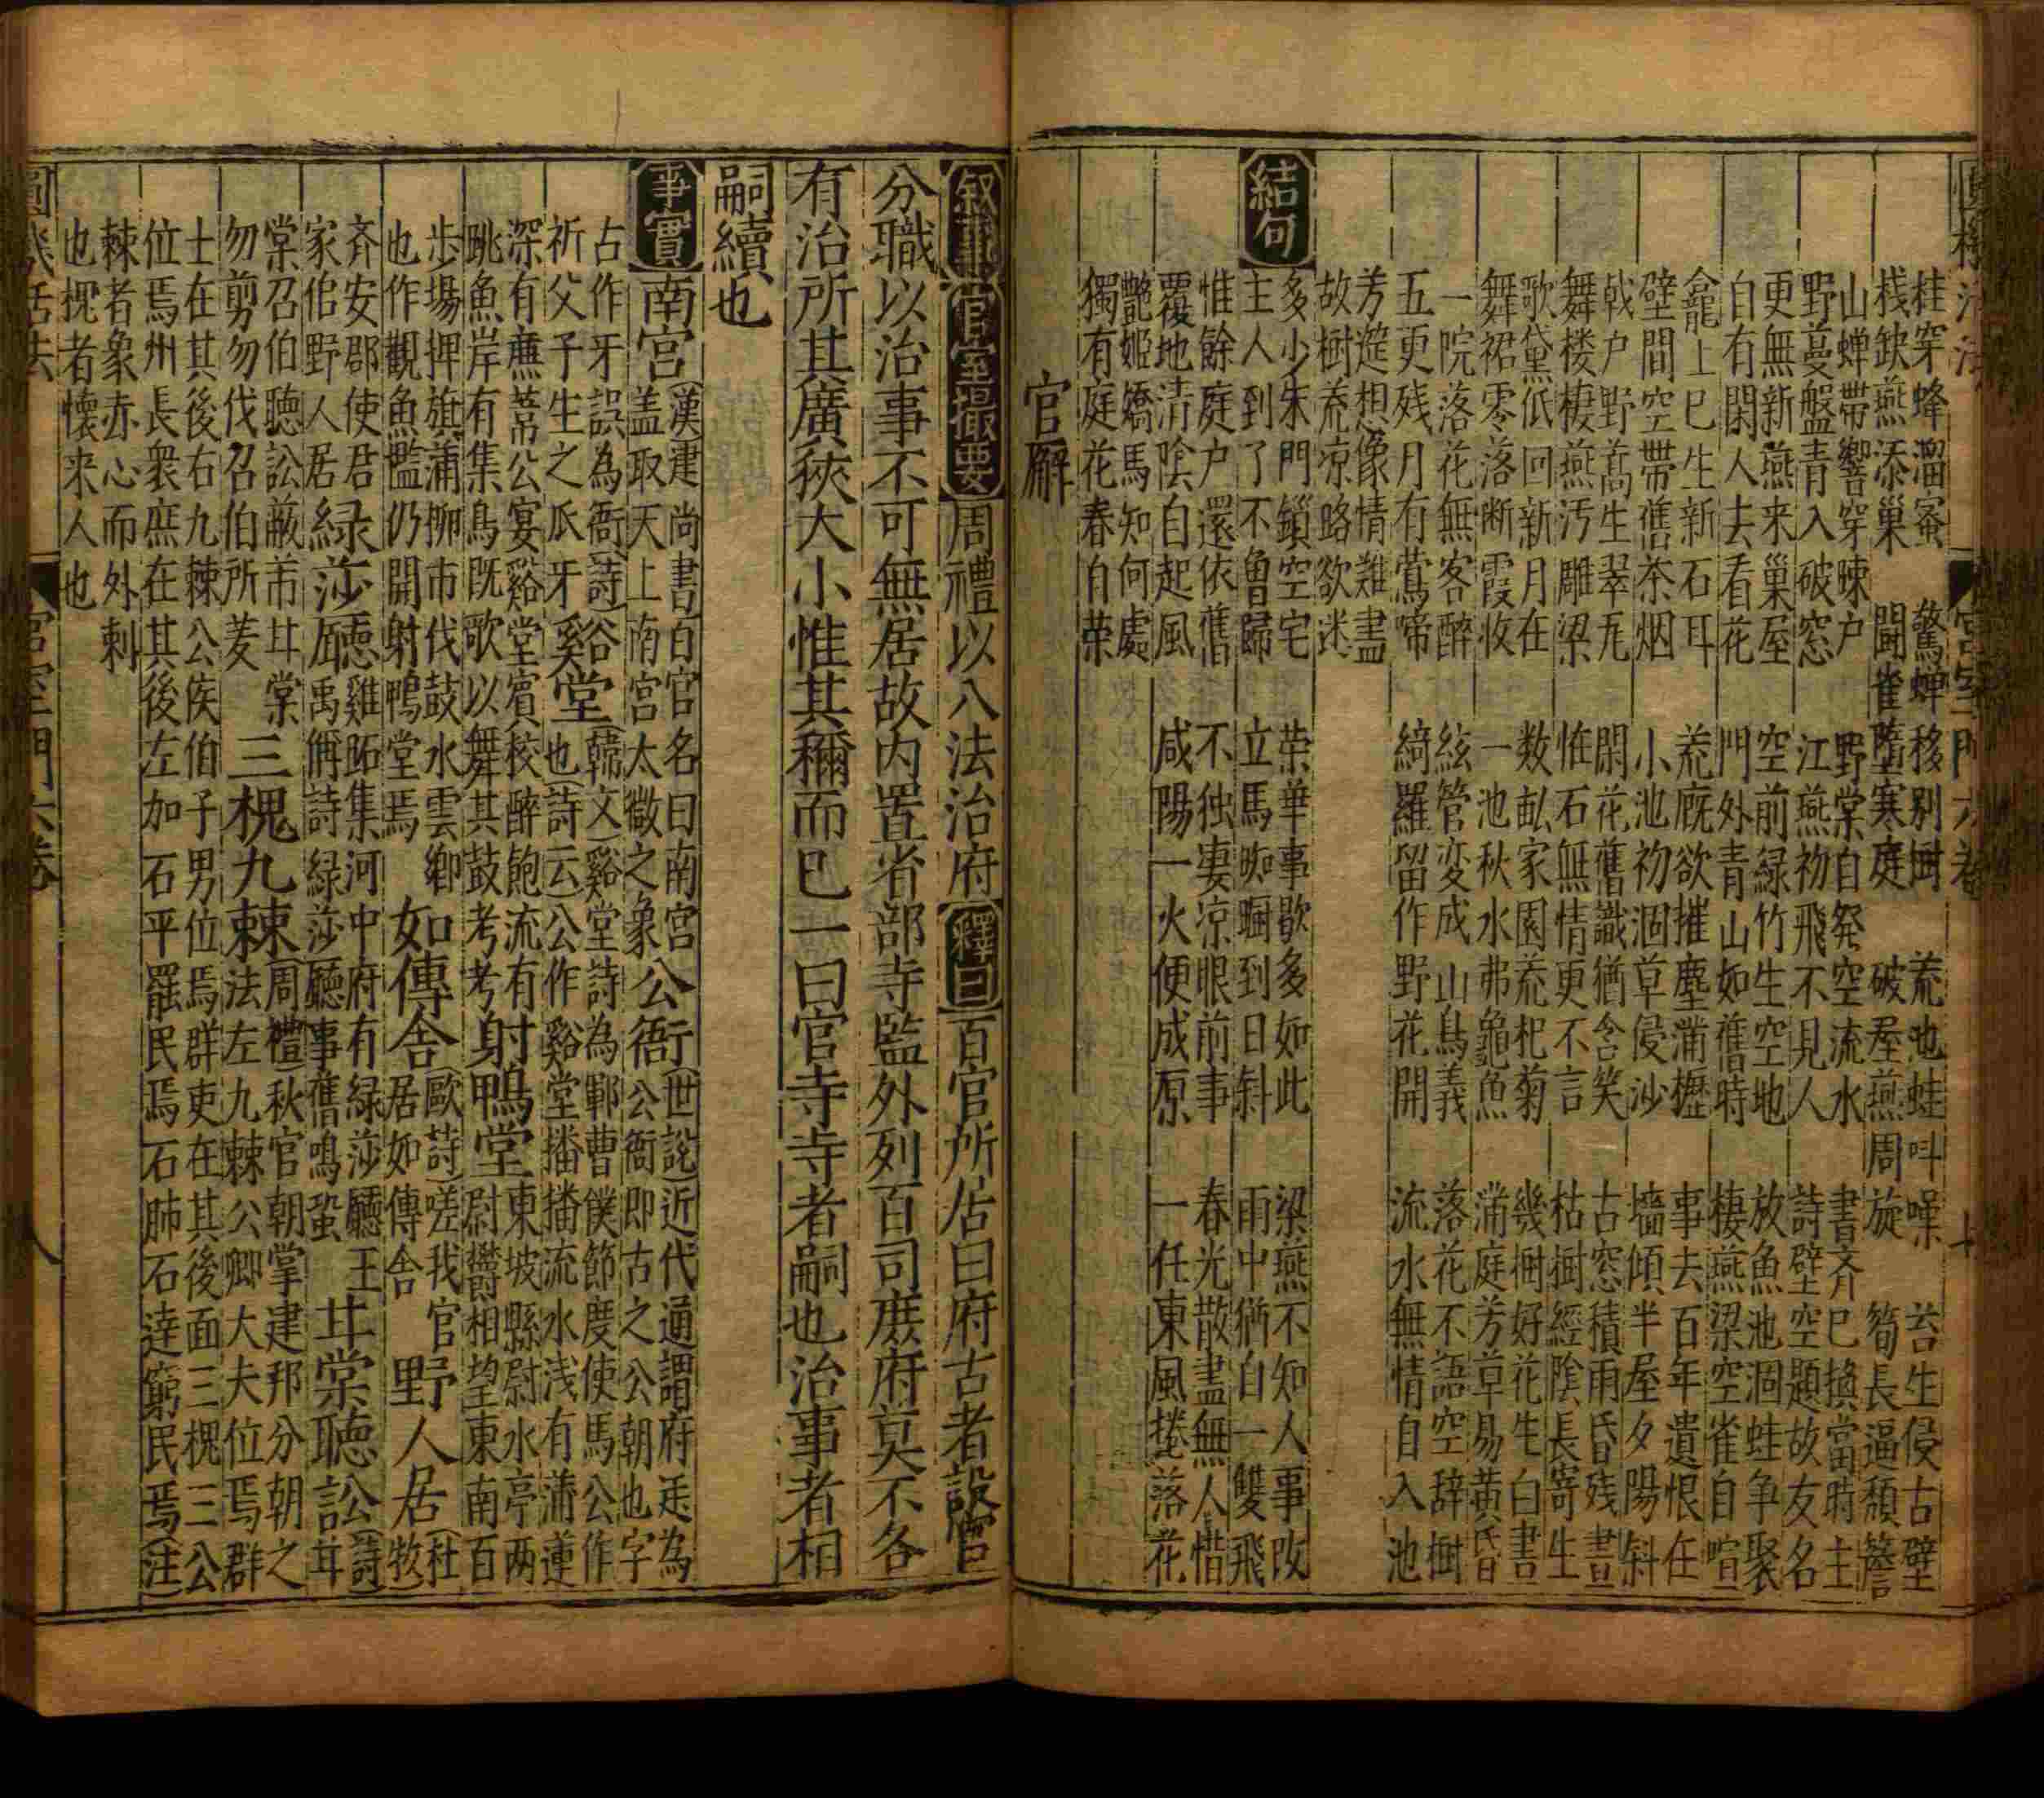 圓機活法 宮室門六卷 七
桂穿蜂溜蜜 驚蟬移别樹 荒池蛙呌噪 苔生侵古壁
栈缺燕添巢 鬪雀墮寒庭 破屋燕周旋 筍長逼頽簷
山蟬帶響穿疎户 野棠自發空流水 書齐已換當時主
野蔓盤青入破窓 江燕初飛不見人 詩壁空題故友名
更無新燕来巢屋 空前緑竹生空地 放魚池涸蛙争聚
自有閑人去看花 門外青山如舊時 棲燕梁空雀自喧
龕上已生新石耳 荒廐欲摧塵滿櫪 事去百年遺恨在
壁間空帶舊茶烟 小池初涸草侵沙 墻傾半屋夕陽斜
戟户野蒿生翠瓦 閑花舊識猶含笑 古窓積雨昏残晝
舞楼棲燕汚雕梁 惟石無情更不言 枯樹經陰長寄生
歌黛低回新月在 数畝家園荒杞菊 幾樹好花生白晝
舞裙零落断霞收 一池秋水弗龜魚 滿庭芳草易黄昏
一院落花無客醉 絃管変成山鳥義 落花不語空辞樹
五更残月有鶯啼 綺羅留作野花開 流水無情自入池
芳筵想像情難盡
故樹荒凉路欲迷
結句
多少朱門鎖空宅 榮華事歇多如此 梁燕不知人事改
主人到了不曾歸 立馬踟蹰到日斜 雨中猶自一雙飛
惟餘庭户還依舊 不独凄凉眼前事 春光散盡無人惜
覆地清陰自起風 咸陽一火便成原 一任東風捲落花
艷姬嬌馬知何處
獨有庭花春自榮
官廨
叙事 官室撮要 周禮以八法治府 釋曰 百官所居曰府古者設官
分職以治事不可無居故内置省部寺監外列百司庶府莫不各
有治所其廣狹大小惟其稱而已一曰官寺寺者嗣也治事者相
嗣續也
事實 南宮 漢建尚書百官名曰南宮 公衙 世説近代通謂府廷為
盖取天上南宮太微之象 公衙即古之公朝也字
古作牙誤為衙詩 谷堂 韓文谿堂詩為鄆曹僕節度使馬公作
祈父予生之爪牙 也詩云公作谿堂播播流水浅有蒲蓮
深有蒹葭公宴谿堂賓校醉飽流有 射鴨堂 東坡縣尉水亭两
眺魚岸有集鳥既歌以舞其鼓考考 尉欝相望東南百
步場押旗蒲柳市伐鼓水雲郷 如傳舍 歐詩嗟我官 野人居 杜
也作觀魚檻仍開射鴨堂焉 居如傳舍 牧
斉安郡使君 緑莎廳 雞跖集河中府有緑莎廳王 甘棠聽訟 詩
家倍野人居 禹偁詩緑莎廳事舊鳴蛩 甘
棠召伯聽訟蔽芾甘棠 三槐九棘 周禮秋官朝掌建邦分朝之
勿剪勿伐召伯所茇 法左九棘公卿大夫位焉群
士在其後右九棘公侯伯子男位焉群吏在其後面三槐三公
位焉州長衆庶在其後左加石平罷民焉石肺石達窮民焉注
棘者象赤心而外刺
也槐者懷来人也
圓機活法 宮室門六卷 八